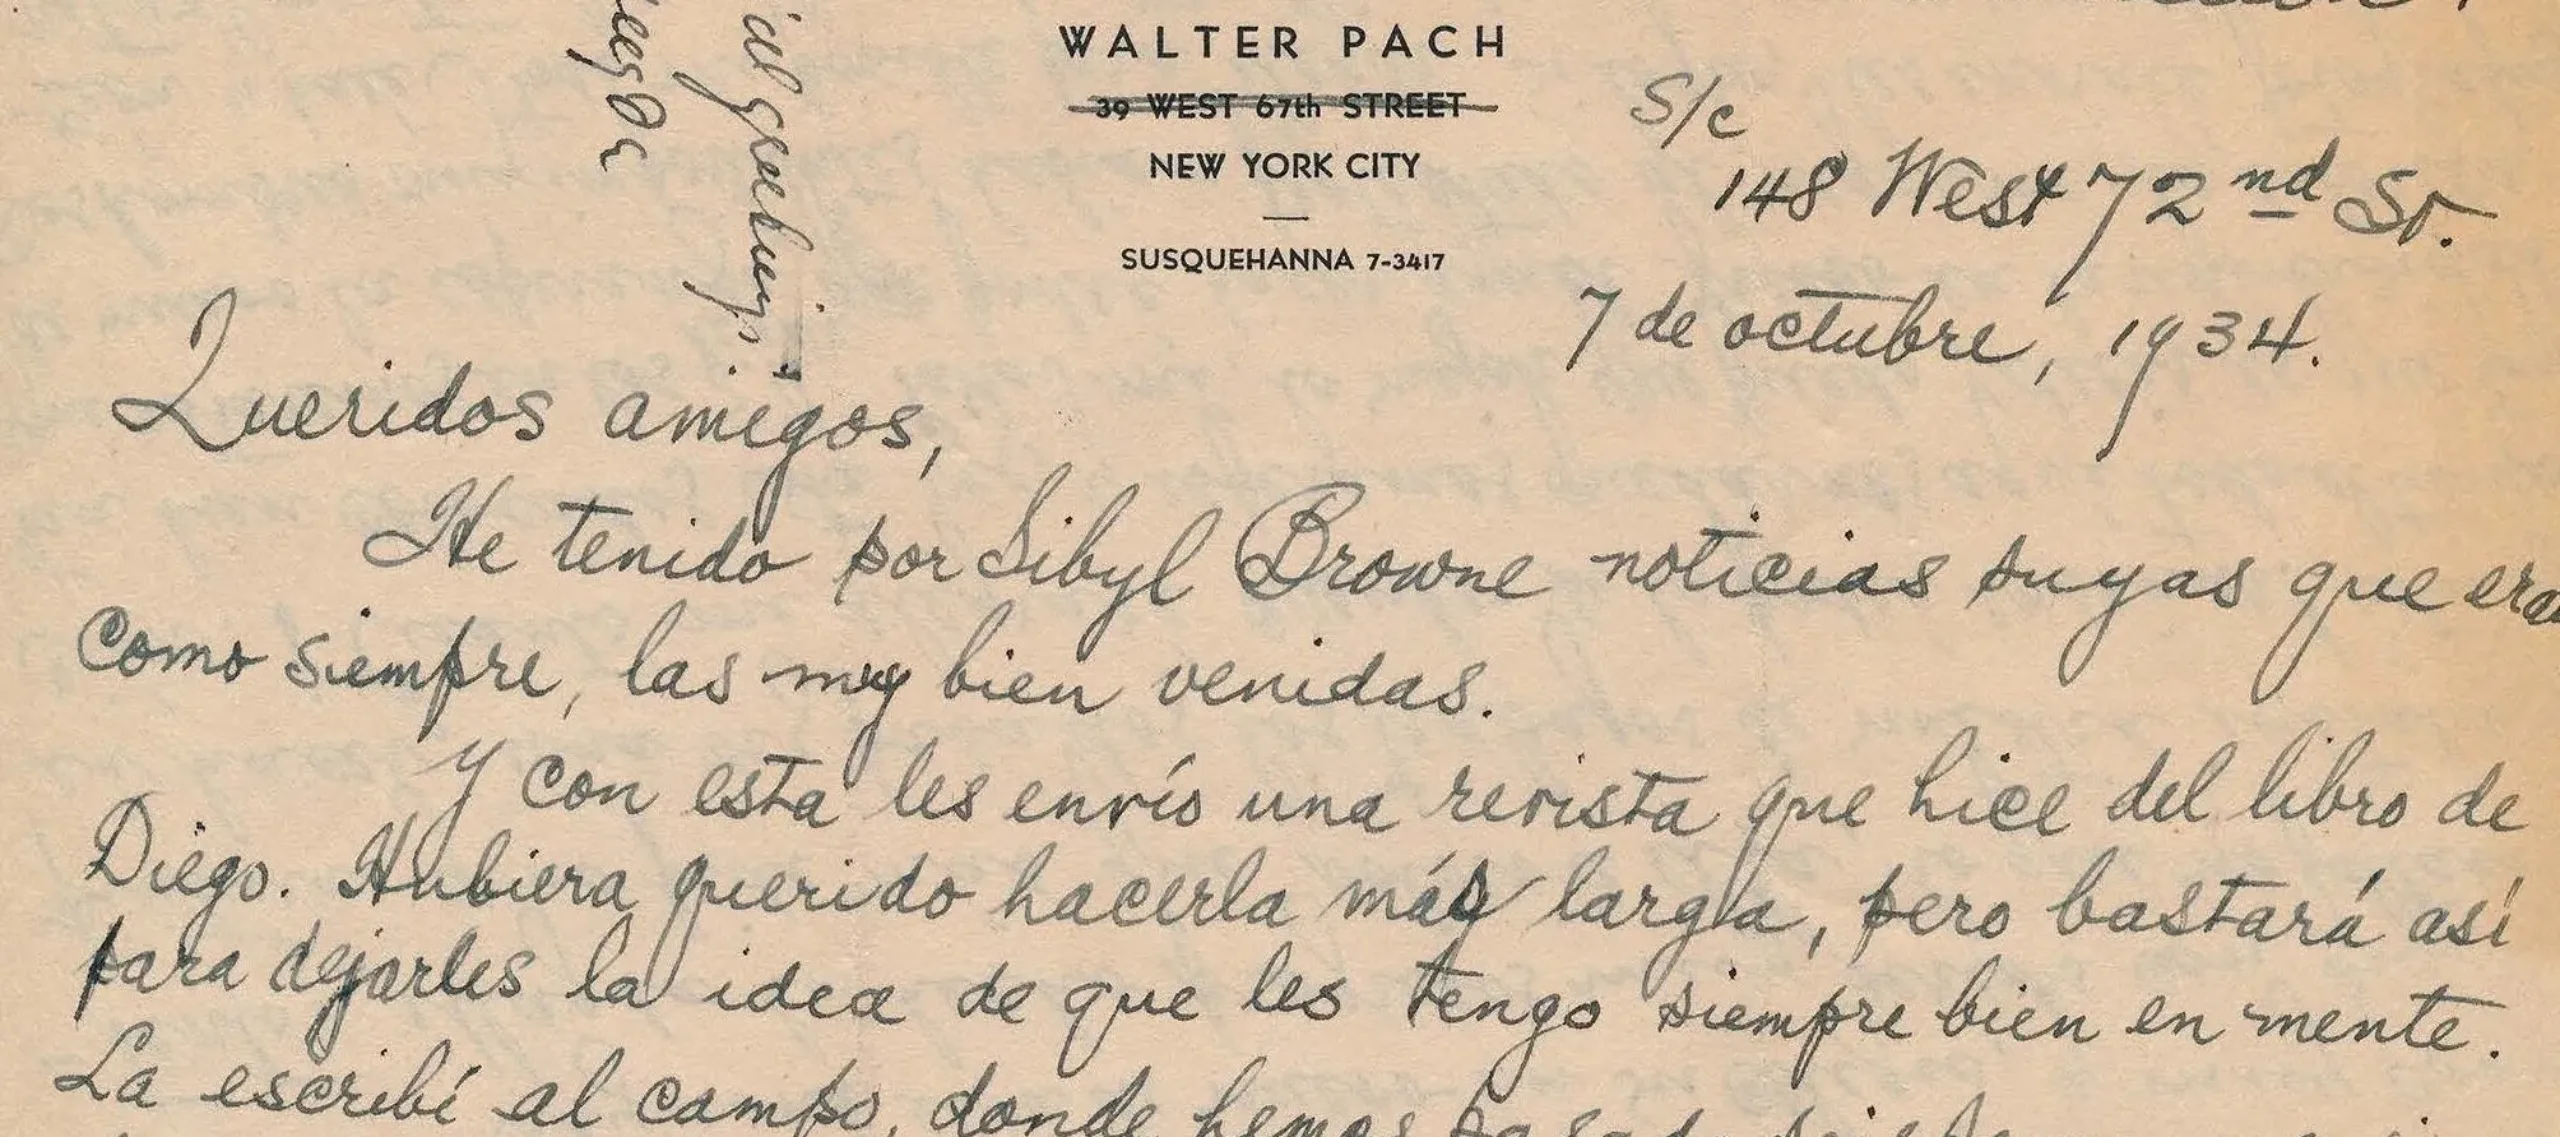 WALTER PACH
39 WEST 67th STREET
NEW YORK CITY
SUSQUEHANNA 7-3417
S/c
148 West 72nd St.
7 de octubre, 1934.
Queridos amigos,
He tenido por Sibyl Browne noticias suyas que
como siempre, las muy bien venidas.
Y con esta les envío una revista que hice del libro de
Diego. Hubiera querido hacerla más larga, pero bastará así
para dejarles la idea de que les tengo siempre bien en mente.
La escribí al campo, donde hemos